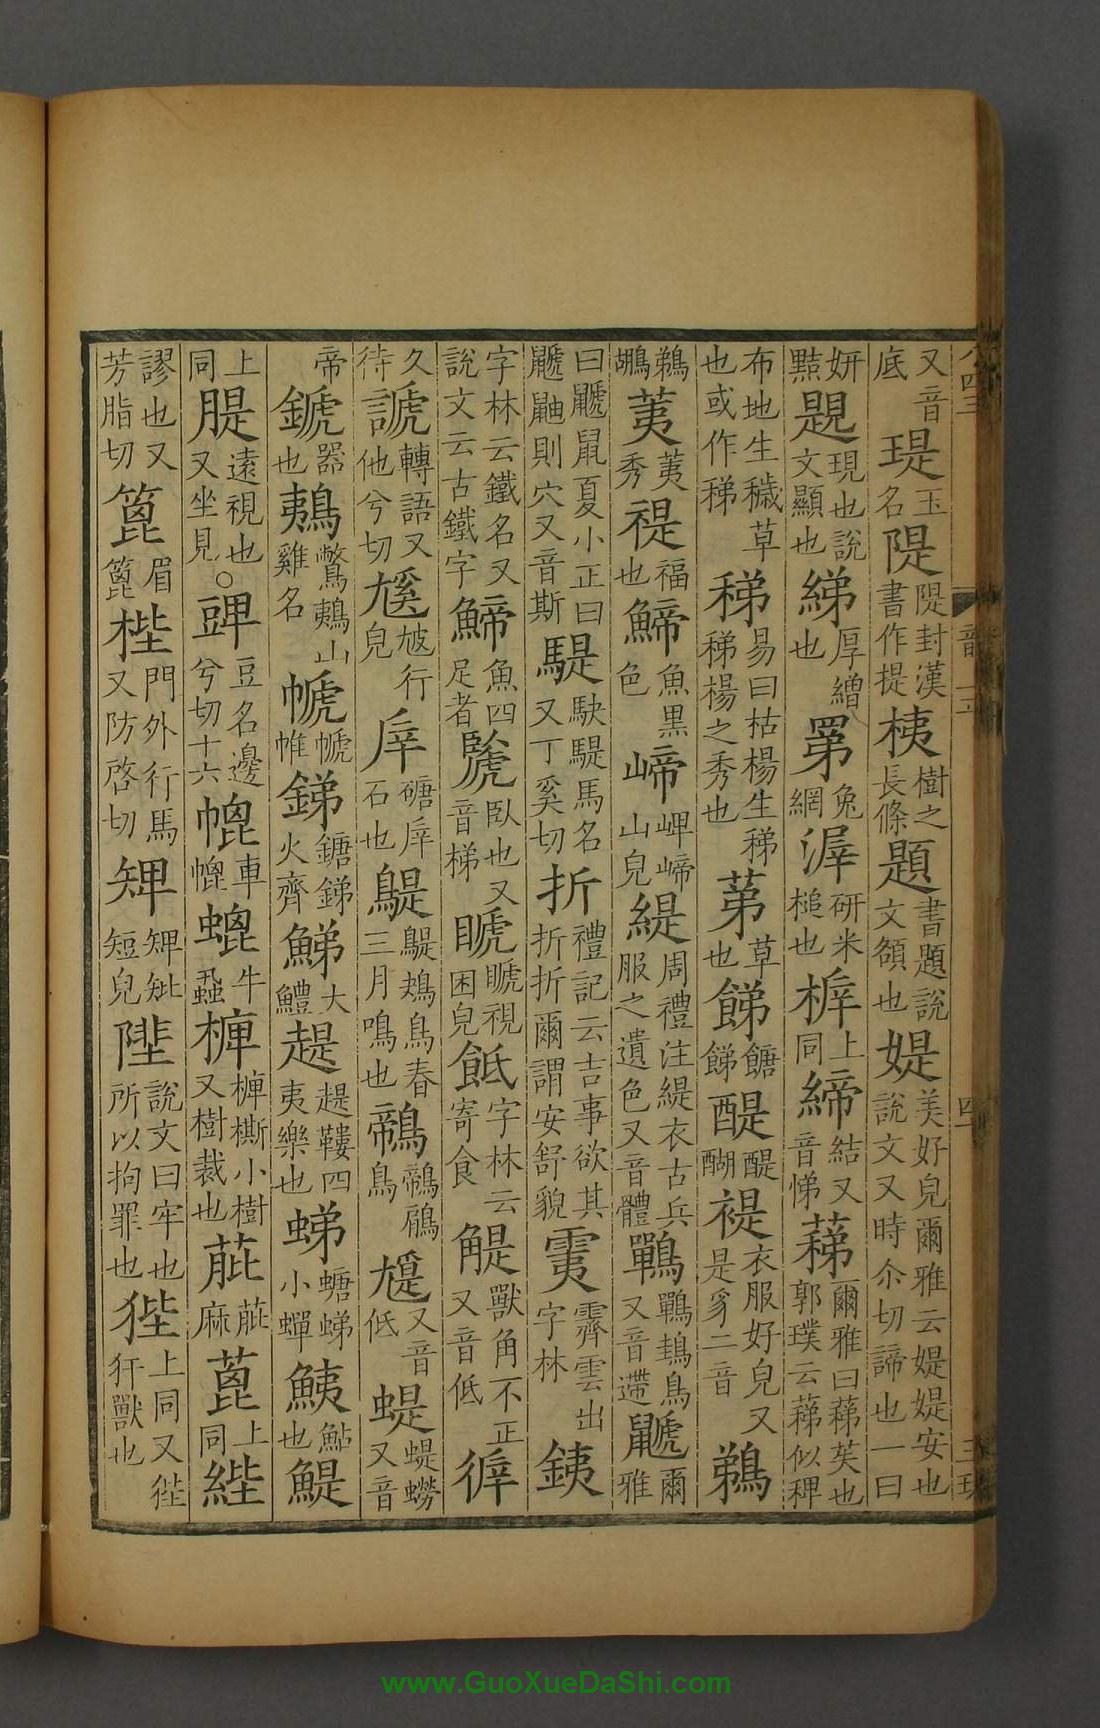 又音底瑅玉名隄隄封漢書作提桋樹之長條題書題說文頟也媞美好皃爾雅云媞媞安也說文又時尒切諦也一曰
妍黠題現也說文顯也綈厚繒也罤兔網漽研米槌也上同締結又音悌蕛爾雅曰蕛苵也郭璞云蕛似稗
布地生穢草也或作稊稊易曰枯楊生稊稊楊之秀也苐草也餳餹醍醍醐褆衣服好皃又是豸二音鵜
鵜鶘荑荑秀禔福也鮷魚黑色崹岬崹山皃緹周禮注緹衣古兵服之遺色又音體鷤鷤鴂鳥又音遰鼶爾雅
曰鼶鼠夏小正曰鼶鼬則穴又音斯騠駃騠馬名又丁奚切折禮記云吉事欲其折折爾謂安舒貌霴霽雲出字林銕
字林云鐵名又說文云古鐵字鯷魚四足者䖙臥也又音梯䁯䁯視困皃䬫字林云寄食䚣獸角不正又音低徲
久待謕轉語又他兮切尳行皃庢磄庢石也鶗鶗鴂鳥春三月鳴也鷤鷤鷉鳥尵又音低蝭蝭蟧又音
帝鍗器也鴺鷩鴺山雞名帷銻鎕銻火齊鮷大鱧趧趧鞻四夷樂也蝭螗蝭小蟬鮧鮎也鯷
上同䐎遠視也又坐見○豍豆名邊兮切十六㡙車㡙螕牛蝨椑椑榹小樹又樹裁也䔇麻蓖上同㮰
謬也又芳脂切篦眉篦梐門外行馬又防啓切䂣䂣䂣短皃陛說文曰牢也所以拘罪也狴上同又狴犴獸也
www.GuoXueDaShi.com